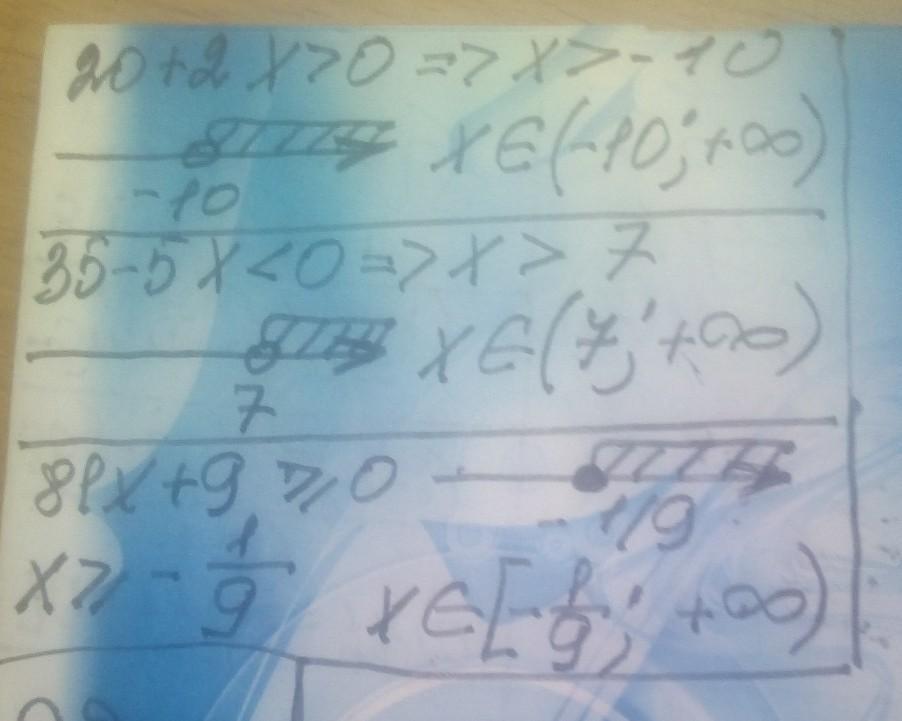 20+2x>0 => x>-10
x∈(-10; +∞)
-10
35-5x<0 => x>7
x∈(7; +∞)
7
81x+9⩾0
-1/9
x⩾-1/9
x∈[-1/9; +∞)